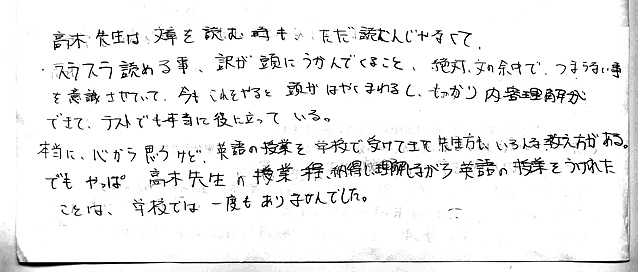 高木先生は文章を読む時も、ただ読むんじゃなくて、
・スラスラ読める事、訳が頭にうかんでくること、絶対、文の途中で、つまらない事
を意識させていて、今も これをやると 頭が はやくまわるし、しっかり内容理解が
できて、テストでも本当に役に立っている。
本当に、心から思うけど、英語の授業を学校で受けてきて先生方も、いろんな教え方がある。
でも やっぱ 高木先生の授業程、納得し理解しながら英語の授業をうけれた
ことは、学校では一度もありませんでした。